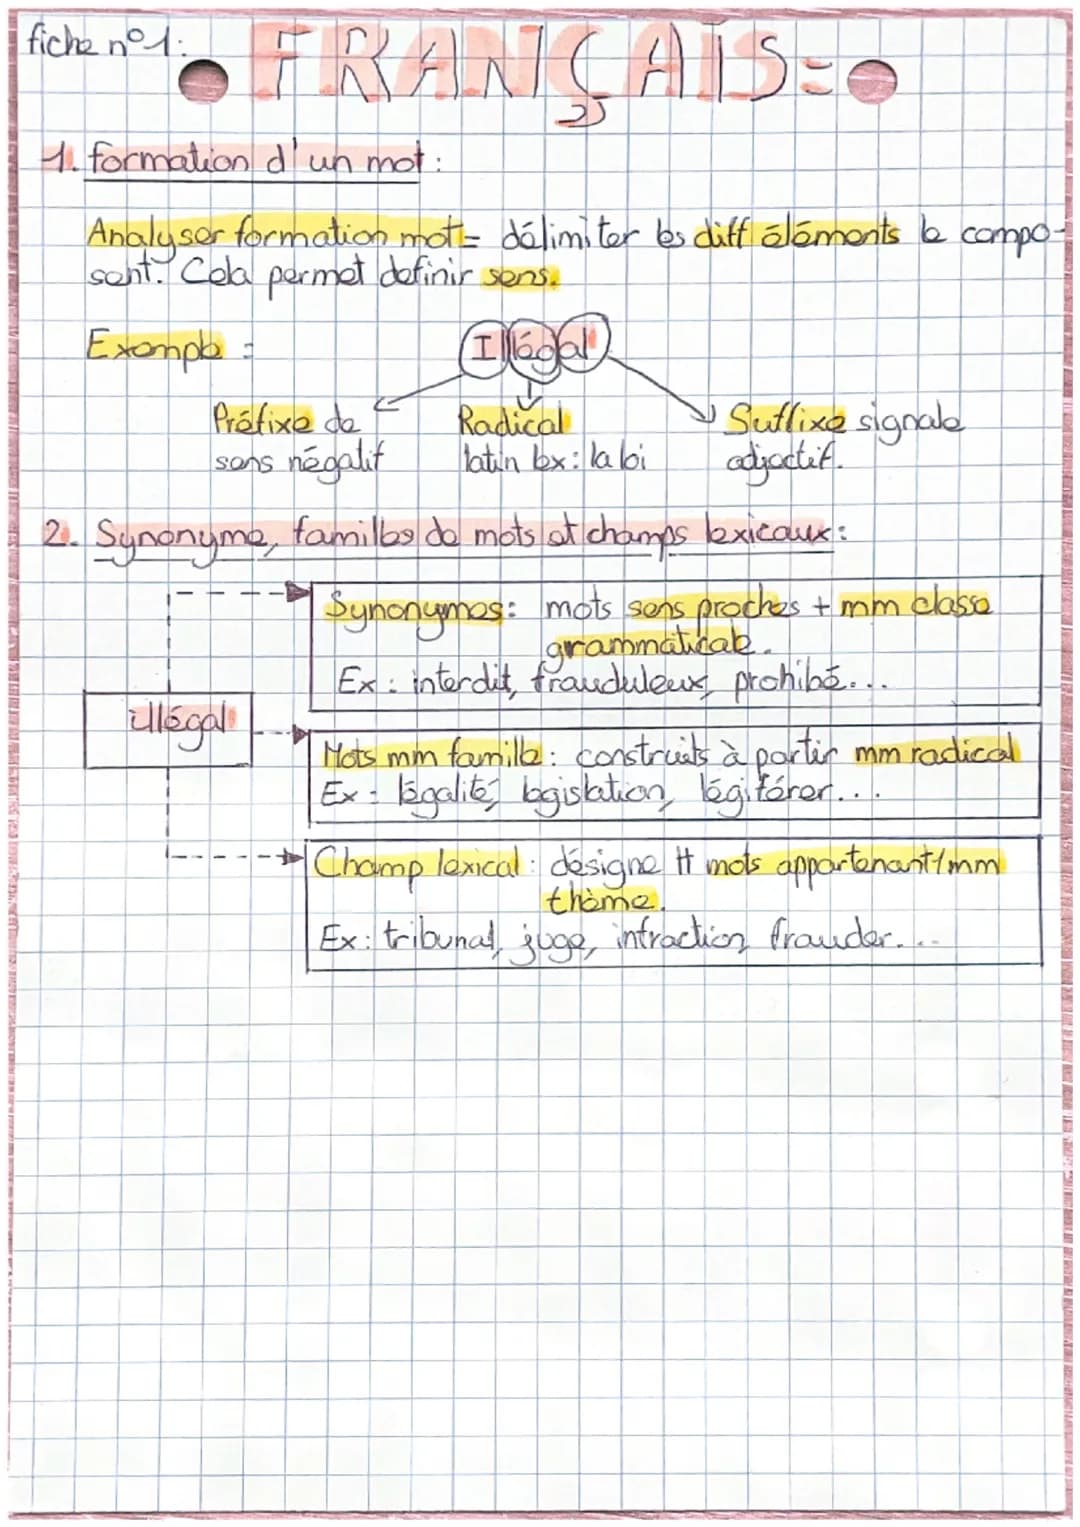 fiche n°1:
FRANÇAIS:
1. formation d'un mot :
Analyser formation mot = délimiter les diff éléments le compo-
sent. Cela permet definir sens.
Exemple :
Illégal
Préfixe de
sens négatif
Radical
latin lex : la loi
Suffixe signale
adjectif.
2. Synonyme, familles de mots et champs lexicaux :
Synonymes : mots sens proches + mm classe
grammaticale.
Ex : interdit, frauduleux, prohibé...
illégal
Mots mm famille : construits à partir mm radical
Ex : légalité, législation, légiférer...
Champ lexical : désigne tt mots appartenant/mm
thème.
Ex : tribunal, juge, infraction, frauder...